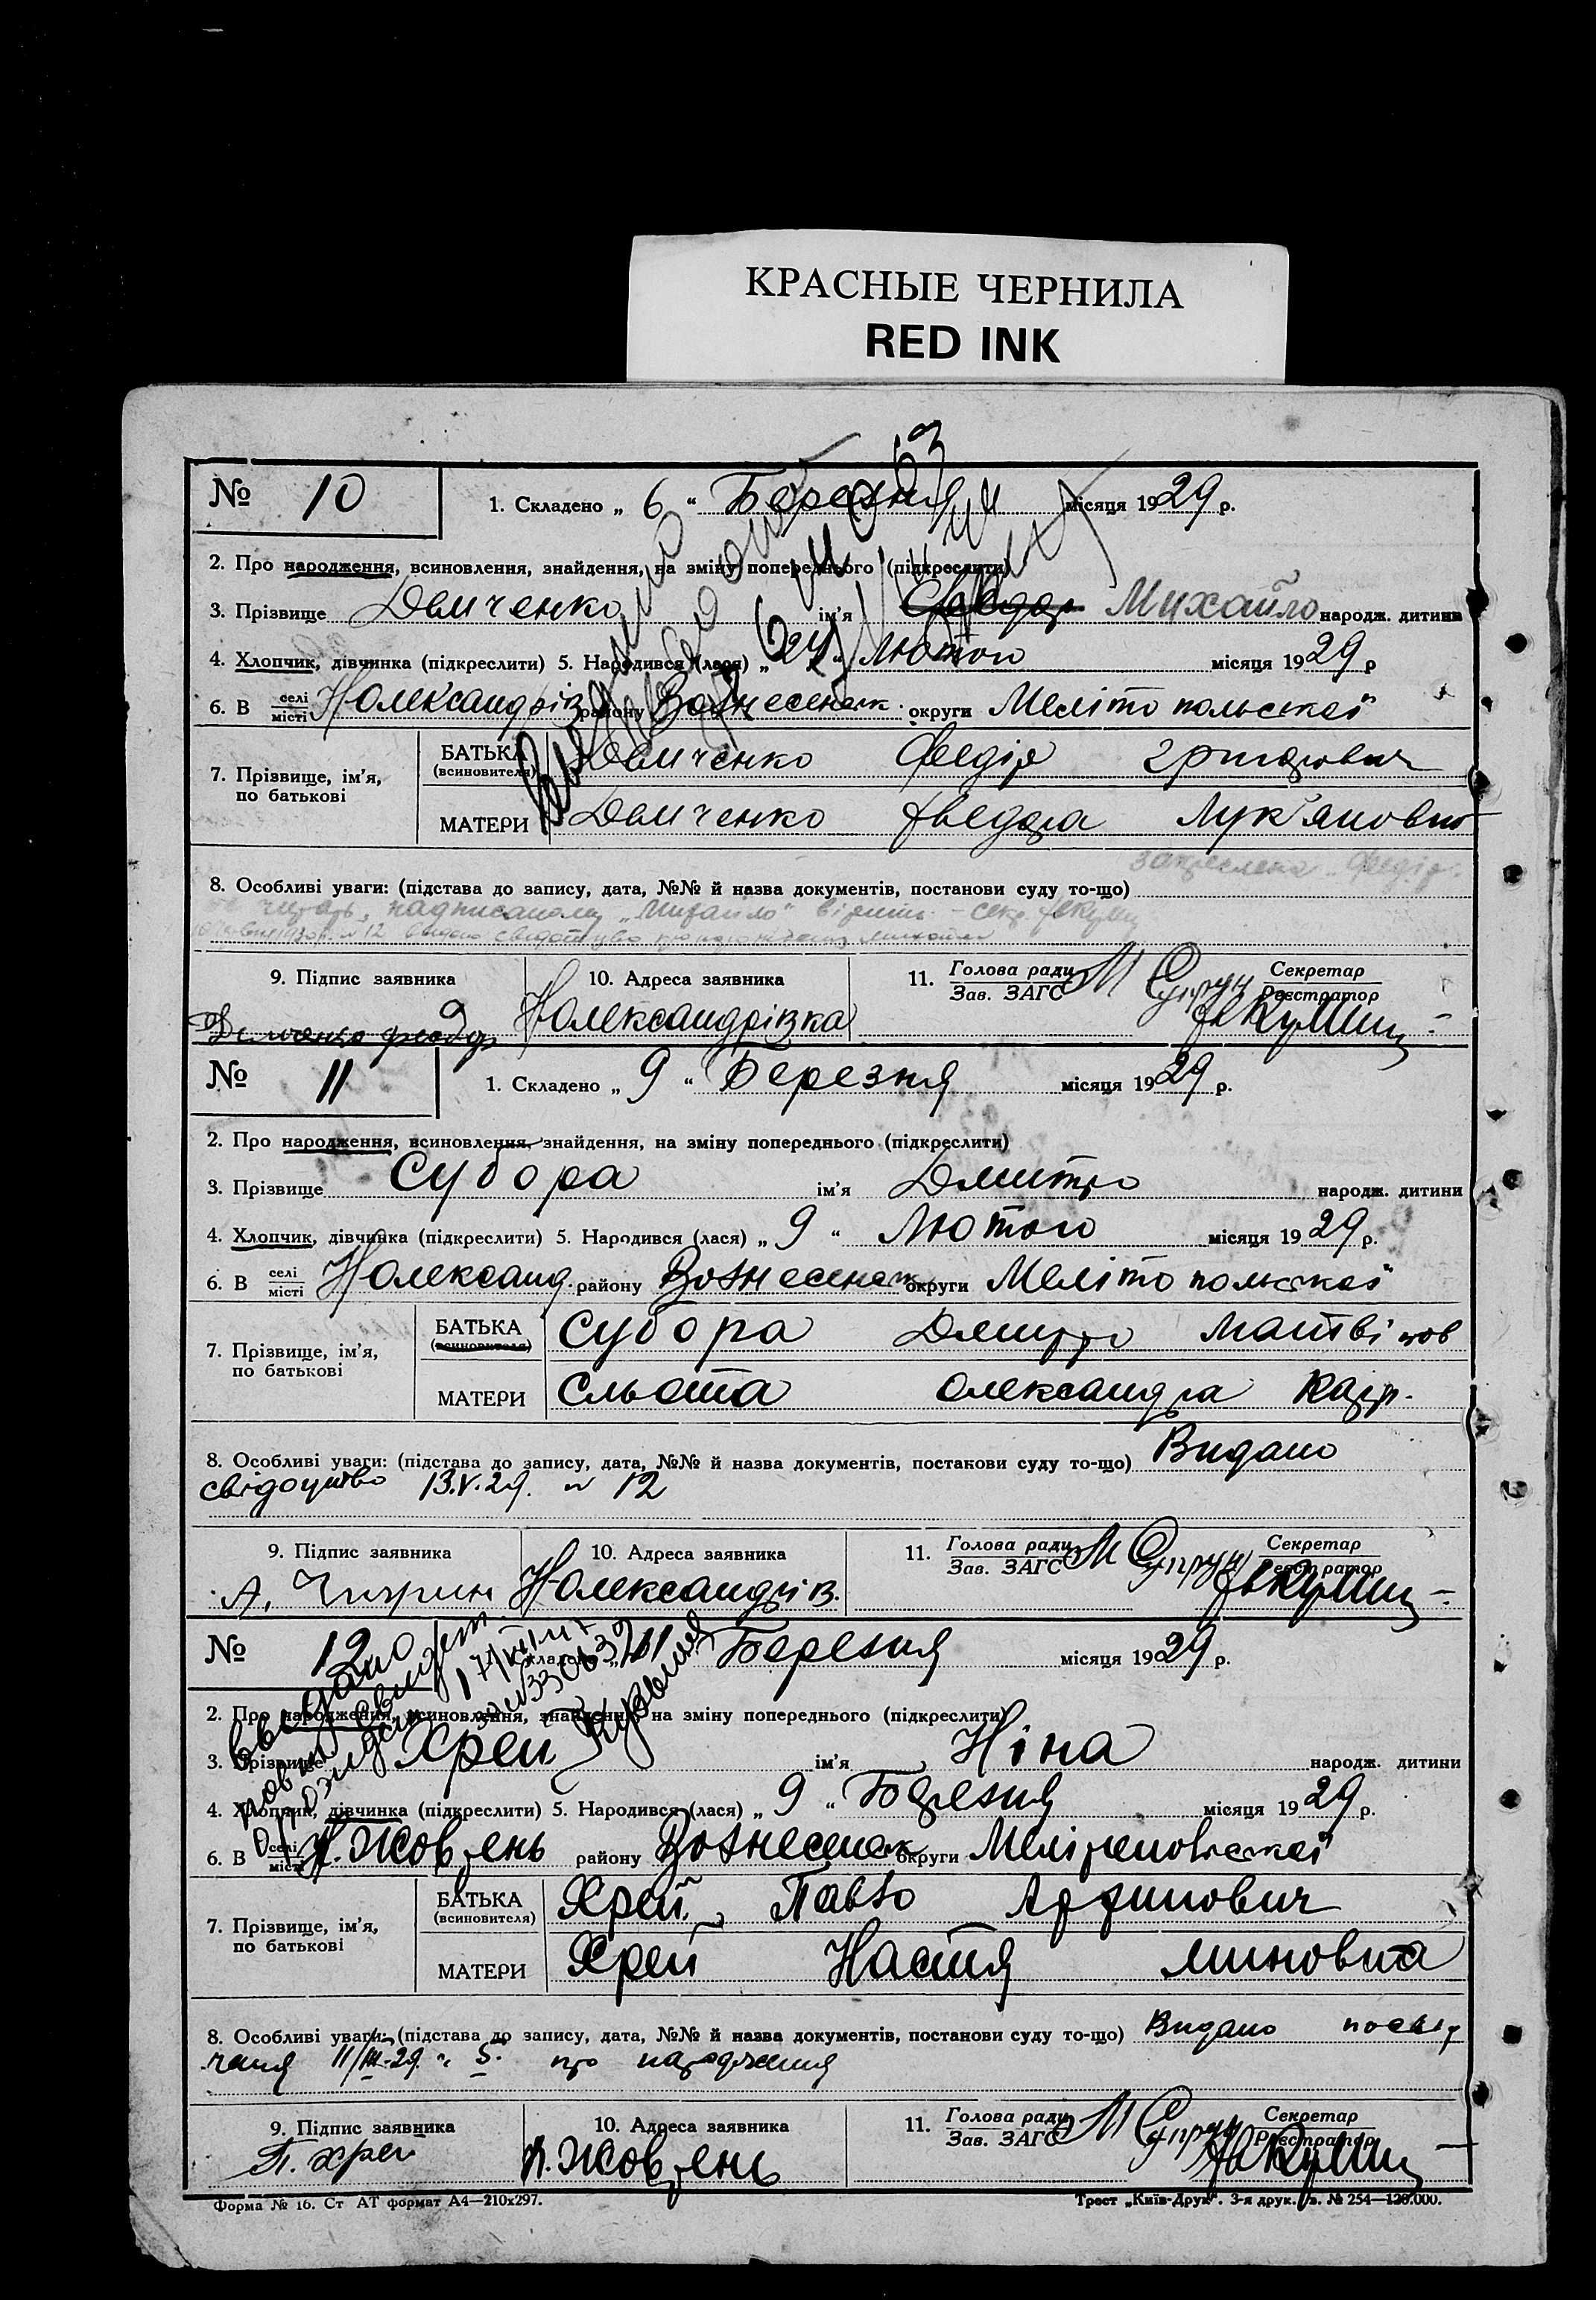 КРАСНЫЕ ЧЕРНИЛА
RED INK
№ 10 1. Складено „ 6 “ Березня місяця 1929 р.
2. Про народження, всиновлення, знайдення, на зміну попереднього (підкреслити)
3. Прізвище Демченко ім'я Михайло народж. дитини
4. Хлопчик, дівчинка (підкреслити) 5. Народився (лася) „ 24 “ Лютого місяця 1929 р
6. В селі місті Н олександрів району Вознесенськ. округи Мелітопольської
7. Прізвище, ім'я, по батькові
БАТЬКА (всиновителя) Демченко Федір Григорович
МАТЕРИ Демченко Лук'яновна
8. Особливі уваги: (підстава до запису, дата, №№ й назва документів, постанови суду то-що) закреслено „Федір“
читать, надписаному „Михайло“ вірить - секр.
9. Підпис заявника 10. Адреса заявника 11. Голова ради Зав. ЗАГС Секретар Реєстратор
Демченко Федор Н олександрівка
№ 11 1. Складено „ 9 “ Березня місяця 1929 р.
2. Про народження, всиновлення, знайдення, на зміну попереднього (підкреслити)
3. Прізвище Субора ім'я Дмитро народж. дитини
4. Хлопчик, дівчинка (підкреслити) 5. Народився (лася) „ 9 “ Лютого місяця 1929 р.
6. В селі місті Н олександ. району Вознесенськ округи Мелітопольської
7. Прізвище, ім'я, по батькові
БАТЬКА (всиновителя) Субора Дмитро Матвійов
МАТЕРИ Сльота Олександра
8. Особливі уваги: (підстава до запису, дата, №№ й назва документів, постанови суду то-що) Видано
свідоцтво 13.V.29. № 12
9. Підпис заявника 10. Адреса заявника 11. Голова ради Зав. ЗАГС Секретар Реєстратор
А. Н олександрів.
№ 12 1. Складено „ 11 “ Березня місяця 1929 р.
2. Про народження, всиновлення, знайдення, на зміну попереднього (підкреслити)
3. Прізвище Хрей ім'я Ніна народж. дитини
4. Хлопчик, дівчинка (підкреслити) 5. Народився (лася) „ 9 “ Березня місяця 1929 р.
6. В селі місті Ч. Жовтень району Вознесенськ округи Мелітопольської
7. Прізвище, ім'я, по батькові
БАТЬКА (всиновителя) Хрей Павло
МАТЕРИ Хрей Настя Миновна
8. Особливі уваги: (підстава до запису, дата, №№ й назва документів, постанови суду то-що) Видано посвід
ченя 11/III-29. № 5. про народження
9. Підпис заявника 10. Адреса заявника 11. Голова ради Зав. ЗАГС Секретар Реєстратор
П. Хрей Ч. Жовтень
Форма № 16. Ст АТ формат А4—210х297. Трест „Київ-Друк“. 3-я друк. № 254—120.000.